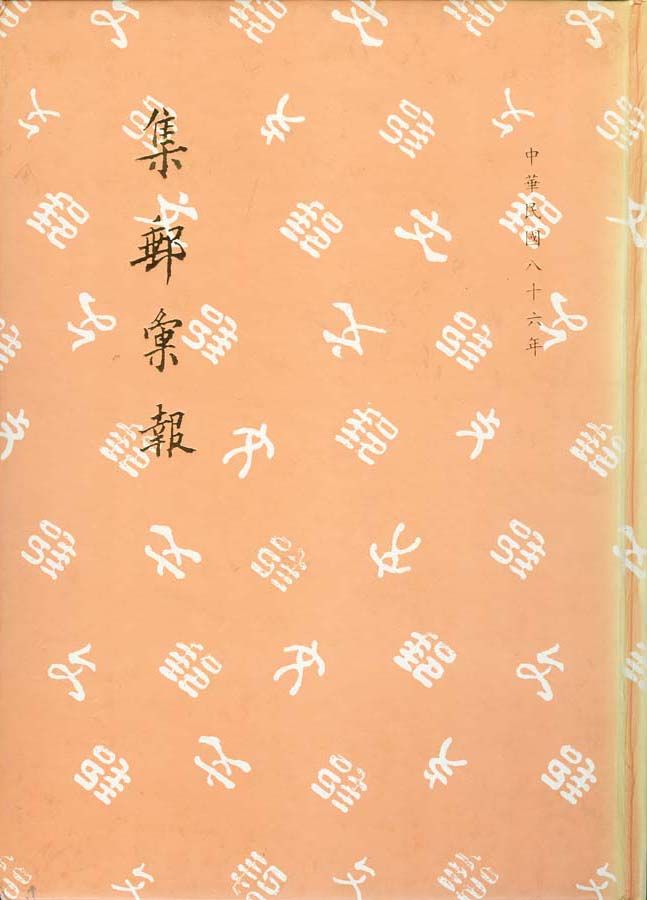 中華民國八十六年
集郵彙報